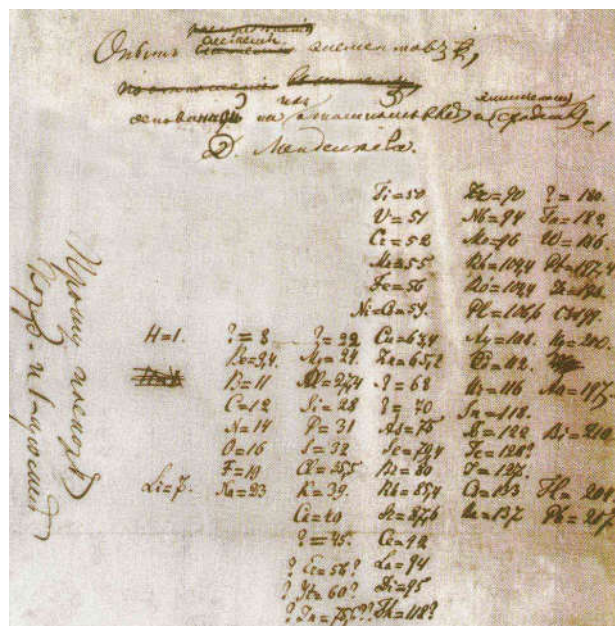 Опытъ системы элементовъ,
основанной на ихъ атомномъ вѣсѣ и химическомъ сходствѣ,
Д. Менделѣева.
Ti=50 Zr=90 ?=180
V=51 Nb=94 Ta=182
Cr=52 Mo=96 W=186
Mn=55 Rh=104,4 Pt=197,4
Fe=56 Ru=104,4 Ir=198
Ni=Co=59 Pl=106,6 Os=199
H=1. ?=8 ?=22 Cu=63,4 Ag=108. Hg=200.
Be=9,4 Mg=24. Zn=65,2 Cd=112.
B=11 Al=27,4 ?=68 Ur=116 Au=197?
C=12 Si=28 ?=70 Sn=118.
N=14 P=31 As=75 Sb=122 Bi=210
O=16 S=32 Se=79,4 Te=128?
F=19 Cl=35,5 Br=80 J=127.
Li=7. Na=23 K=39. Rb=85,4 Cs=133 Tl=204
Ca=40 Sr=87,6 Ba=137 Pb=207.
?=45 Ce=92
? Er=56? La=94
? Yt=60? Di=95
? In=75,6?? Th=118?